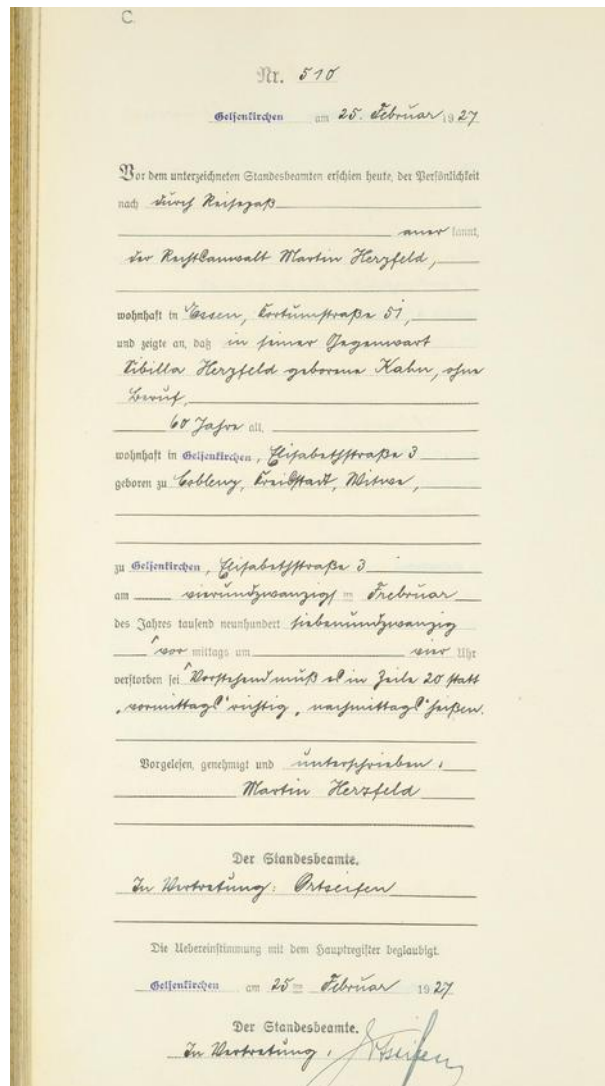 C.
Nr. 510
Gelsenkirchen am 25. Februar 1927
Vor dem unterzeichneten Standesbeamten erschien heute, der Persönlichkeit
nach durch Reisepaß
anerkannt,
der Rechtsanwalt Martin Herzfeld,
wohnhaft in Essen, Kortumstraße 51,
und zeigte an, daß in seiner Gegenwart
Sibilla Herzfeld geborene Kahn, ohne
Beruf,
60 Jahre alt,
wohnhaft in Gelsenkirchen, Elisabethstraße 3
geboren zu Coblenz, Kreisstadt, Witwe,
zu Gelsenkirchen, Elisabethstraße 3
am vierundzwanzigsten Februar
des Jahres tausend neunhundert siebenundzwanzig
vor mittags um vier Uhr
verstorben sei Vorstehend muß es in Zeile 20 statt
"vormittags" richtig "nachmittags" heißen.
Vorgelesen, genehmigt und unterschrieben:
Martin Herzfeld
Der Standesbeamte.
In Vertretung: Ortseifen
Die Uebereinstimmung mit dem Hauptregister beglaubigt.
Gelsenkirchen am 25 Februar 1927
Der Standesbeamte.
In Vertretung: Ortseifen